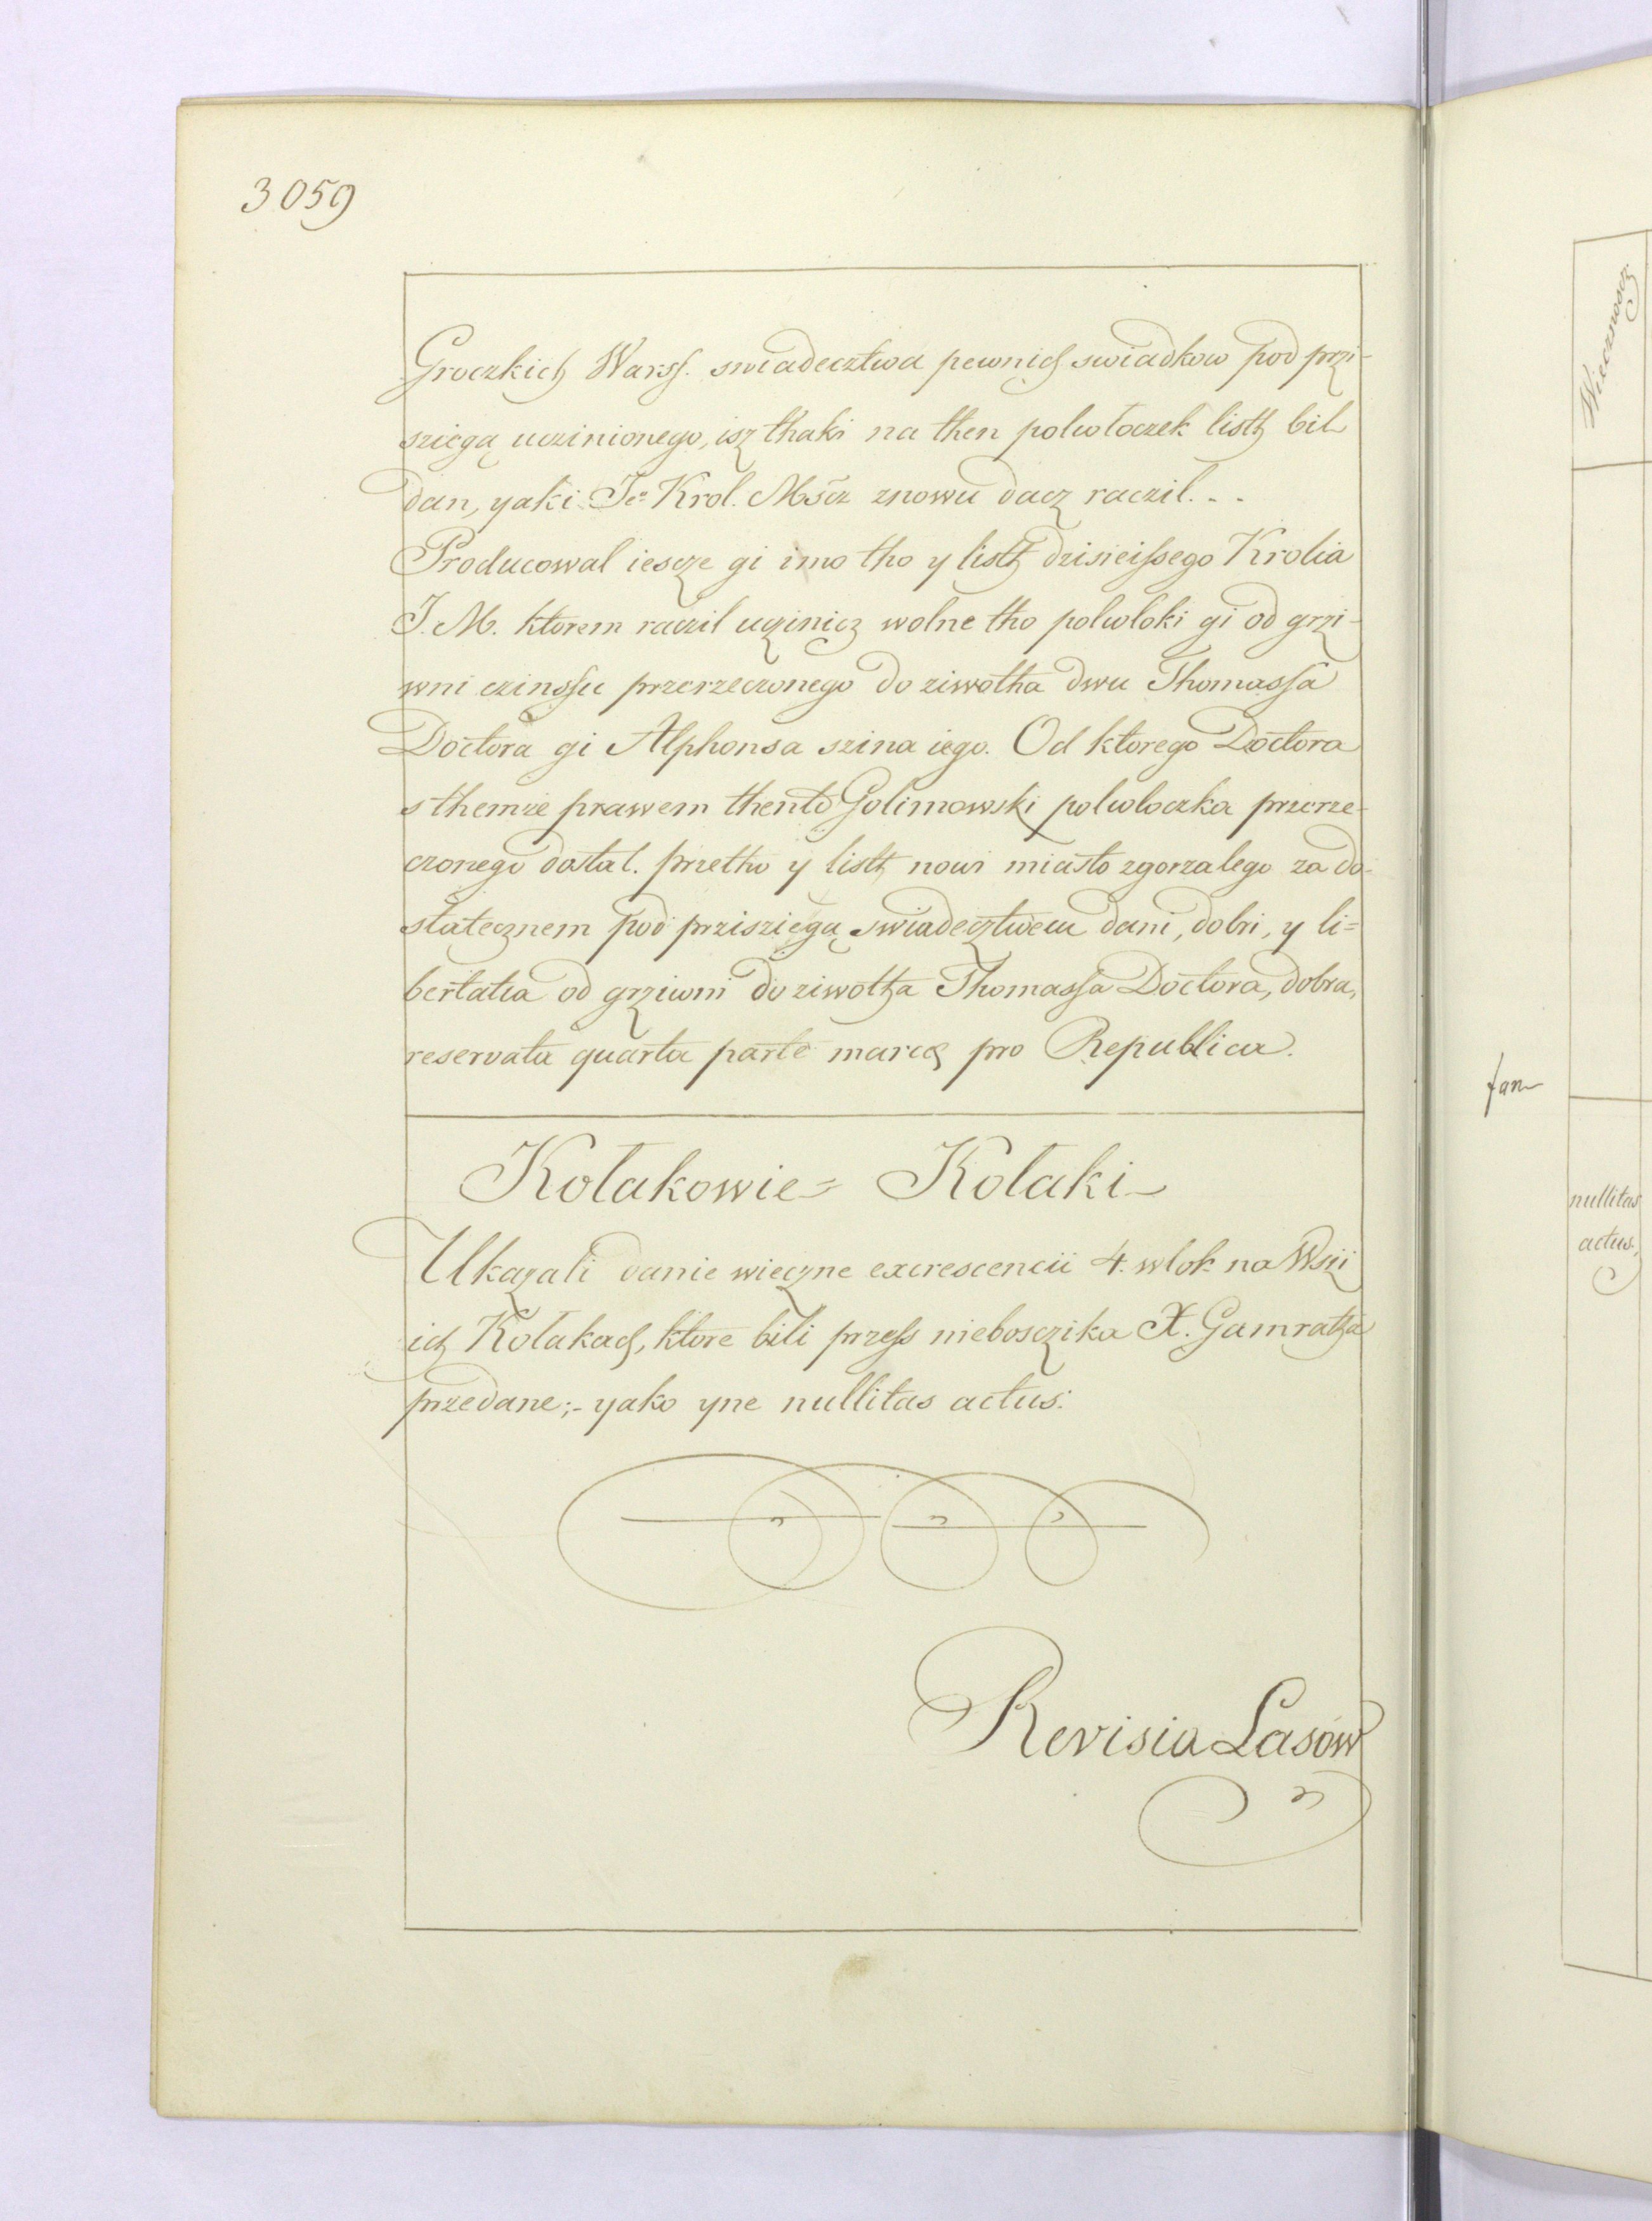 3059
Groczkich Warss. swiadecztwa pewnich swiadkow pod przi-
sziegą uczinionego, isz thaki na then polwloczek listh bil
dan, yaki Jeº Krol. Mścz znowu dacz raczil. . .
Producowal iescze gi imo tho y listh dzisieissego Krolia
J. M. ktorem raczil uczinicz wolne tho polwloki gi od grzi-
wni czinssu przerzeczonego do ziwotha dwu Thomassa
Doctora gi Alphonsa szina iego. Od ktorego Doctora
s themze prawem thento Golimowski polwloczka przerze-
czonego dostal. przetho y listh nowi miasto zgorzalego za do-
statecznem pod przisziegą swiadecztwem dani, dobri, y li=
bertatia od grziwni do ziwotha Thomassa Doctora, dobra,
reservata quarta parte marcę pro Republica.
Kołakowie = Kołaki
Ukazali danie wieczne excrescencii 4. wlok na Wszi
ich Kołakach, ktore bili przess nieboszczika X. Gamratha
przedane;- yako yne nullitas actus:
Revisia Lasów
Wieczność
fan
nullitas
actus.